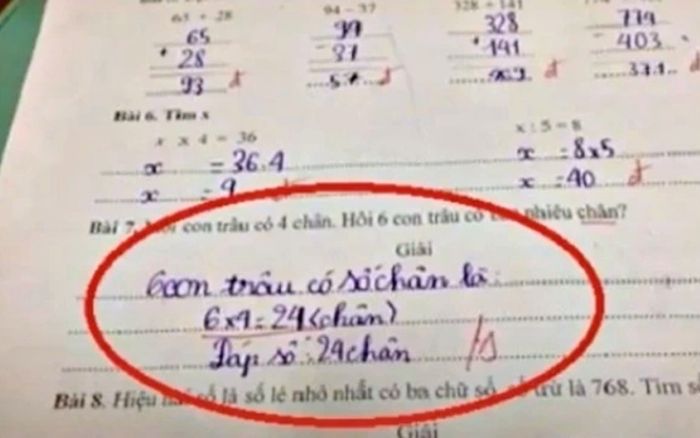 65 + 28 94 - 37 328 + 141
65 328 774
+ 28 - 37 + 141 - 403
93 57 371
đ đ đ
Bài 6. Tìm x
x x 4 = 36 x : 5 = 8
x = 36.4 x = 8x5
x = 9 x = 40 đ
Bài 7. con trâu có 4 chân. Hỏi 6 con trâu có nhiêu chân?
Giải
6 con trâu có số chân là:
6x4=24(chân)
Đáp số: 24chân /s
Bài 8. Hiệu số là số lẻ nhỏ nhất có ba chữ số, số trừ là 768. Tìm
Giải